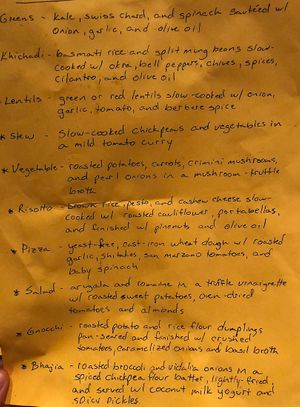 Greens - kale, swiss chard, and spinach sautéed w/
onion, garlic, and olive oil
Khichadi - basmati rice and split mung beans slow-
cooked w/ okra, bell peppers, chives, spices,
cilantro, and olive oil
Lentils - green or red lentils slow-cooked w/ onion,
garlic, tomato, and berbere spice
* Stew - slow-cooked chickpeas and vegetables in
a mild tomato curry
* Vegetable - roasted potatoes, carrots, crimini mushrooms,
and pearl onions in a mushroom-truffle
broth
* Risotto - brown rice, pesto, and cashew cheese slow-
cooked w/ roasted cauliflower, portabellas,
and finished w/ pinenuts and olive oil
* Pizza - yeast-free, cast-iron wheat dough w/ roasted
garlic, shitakes, san marzano tomatoes, and
baby spinach
* Salad - arugala and romaine in a truffle vinaigrette
w/ roasted sweet potatoes, oven-dried
tomatoes and almonds
* Gnocchi - roasted potato and rice flour dumplings
pan-seared and finished w/ crushed
tomatoes, caramelized onions and basil broth
* Bhajia - roasted broccoli and vidalia onions in a
spiced chickpea flour batter, lightly-fried,
and served w/ coconut milk yogurt and
spicy pickles